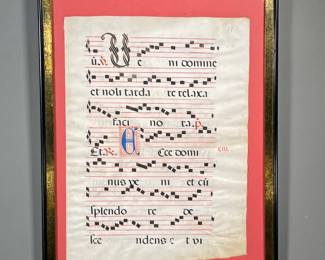 Ve ni domine
et noli tarda re relaxa
faci no ra. ℣.
Et. ℟. Ecce domi
nus ve ni et cū
splendo re de
sce ndens et vi